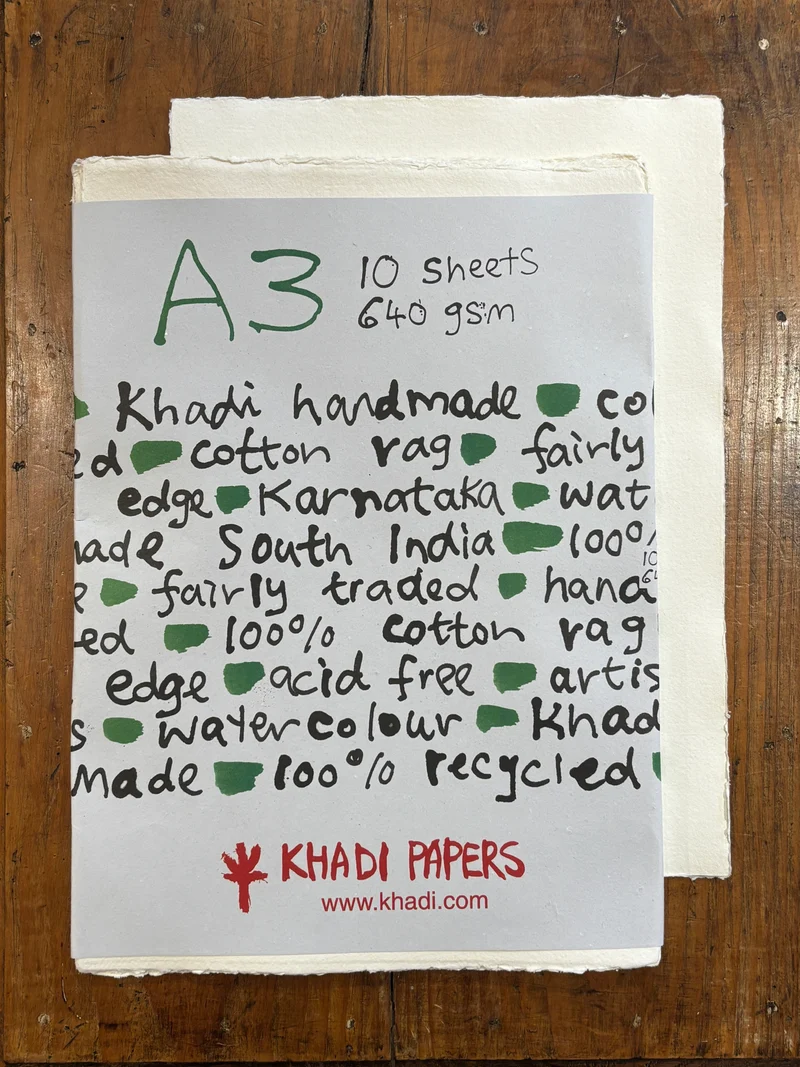 A3
10 sheets
640 gsm
Khadi handmade col
ed cotton rag fairly
edge Karnataka wat
made South India 100%
e fairly traded hand
ed 100% cotton rag
edge acid free artis
s watercolour Khad
made 100% recycled
KHADI PAPERS
www.khadi.com